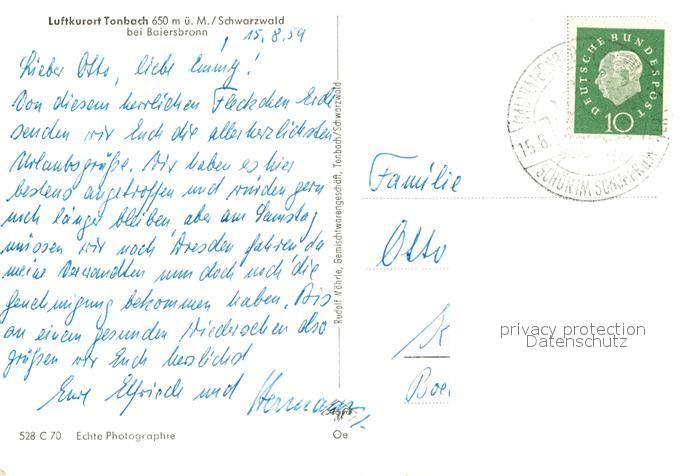 Luftkurort Tonbach 650 m ü. M./Schwarzwald
bei Baiersbronn
15.8.59
Lieber Otto, liebe Emmy!
Von diesem herrlichen Fleckchen Erde
senden wir Euch die allerherzlichsten
Urlaubsgrüße. Wir haben es hier
bestens angetroffen und würden gern
noch länger bleiben aber am Samstag
müssen wir nach Dresden fahren da
meine Verwandten nun doch noch die
Genehmigung bekommen haben. Bis
an einem gesunden Wiedersehen also
grüßen wir Euch herzlichst
Eure Elfriede und Hermann
528 C 70 Echte Photographie
Oe
Rudolf Möhrle, Gemischtwarengeschäft, Tonbach/Schwarzwald
DEUTSCHE BUNDESPOST
10
15.8.
SCHÖN IM SCHWARZWALD
Familie
Otto
K
Boe
privacy protection
Datenschutz